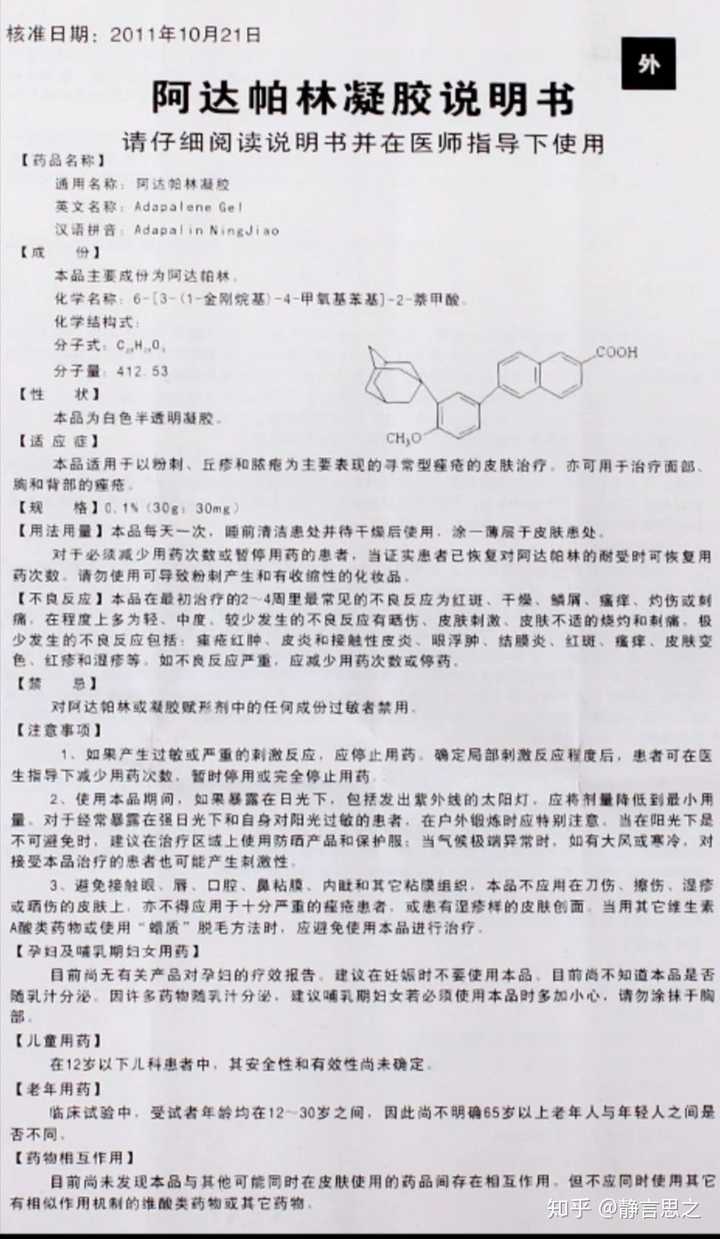 核准日期：2011年10月21日
外
阿达帕林凝胶说明书
请仔细阅读说明书并在医师指导下使用
【药品名称】
通用名称：阿达帕林凝胶
英文名称：Adapalene Gel
汉语拼音：Adapalin NingJiao
【成　份】
本品主要成份为阿达帕林。
化学名称：6-[3-(1-金刚烷基)-4-甲氧基苯基]-2-萘甲酸。
化学结构式：
分子式：C₂₈H₂₈O₃
分子量：412.53
COOH
CH₃O
【性　状】
本品为白色半透明凝胶。
【适应症】
本品适用于以粉刺、丘疹和脓疱为主要表现的寻常型痤疮的皮肤治疗。亦可用于治疗面部、
胸和背部的痤疮。
【规　格】0.1%（30g：30mg）
【用法用量】本品每天一次，睡前清洁患处并待干燥后使用，涂一薄层于皮肤患处。
对于必须减少用药次数或暂停用药的患者，当证实患者已恢复对阿达帕林的耐受时可恢复用
药次数。请勿使用可导致粉刺产生和有收缩性的化妆品。
【不良反应】本品在最初治疗的2～4周里最常见的不良反应为红斑、干燥、鳞屑、瘙痒、灼伤或刺
痛，在程度上多为轻、中度。较少发生的不良反应有晒伤、皮肤刺激、皮肤不适的烧灼和刺痛。极
少发生的不良反应包括：痤疮红肿、皮炎和接触性皮炎、眼浮肿、结膜炎、红斑、瘙痒、皮肤变
色、红疹和湿疹等。如不良反应严重，应减少用药次数或停药。
【禁　忌】
对阿达帕林或凝胶赋形剂中的任何成份过敏者禁用。
【注意事项】
1、如果产生过敏或严重的刺激反应，应停止用药。确定局部刺激反应程度后，患者可在医
生指导下减少用药次数，暂时停用或完全停止用药。
2、使用本品期间，如果暴露在日光下，包括发出紫外线的太阳灯，应将剂量降低到最小用
量。对于经常暴露在强日光下和自身对阳光过敏的患者，在户外锻炼时应特别注意。当在阳光下是
不可避免时，建议在治疗区域上使用防晒产品和保护服；当气候极端异常时，如有大风或寒冷，对
接受本品治疗的患者也可能产生刺激性。
3、避免接触眼、唇、口腔、鼻粘膜、内眦和其它粘膜组织，本品不应用在刀伤、擦伤、湿疹
或晒伤的皮肤上，亦不得应用于十分严重的痤疮患者，或患有湿疹样的皮肤创面。当用其它维生素
A酸类药物或使用“蜡质”脱毛方法时，应避免使用本品进行治疗。
【孕妇及哺乳期妇女用药】
目前尚无有关产品对孕妇的疗效报告。建议在妊娠时不要使用本品。目前尚不知道本品是否
随乳汁分泌。因许多药物随乳汁分泌，建议哺乳期妇女若必须使用本品时多加小心，请勿涂抹于胸
部。
【儿童用药】
在12岁以下儿科患者中，其安全性和有效性尚未确定。
【老年用药】
临床试验中，受试者年龄均在12～30岁之间，因此尚不明确65岁以上老年人与年轻人之间是
否不同。
【药物相互作用】
目前尚未发现本品与其他可能同时在皮肤使用的药品间存在相互作用。但不应同时使用其它
有相似作用机制的维酸类药物或其它药物。
知乎 @静言思之